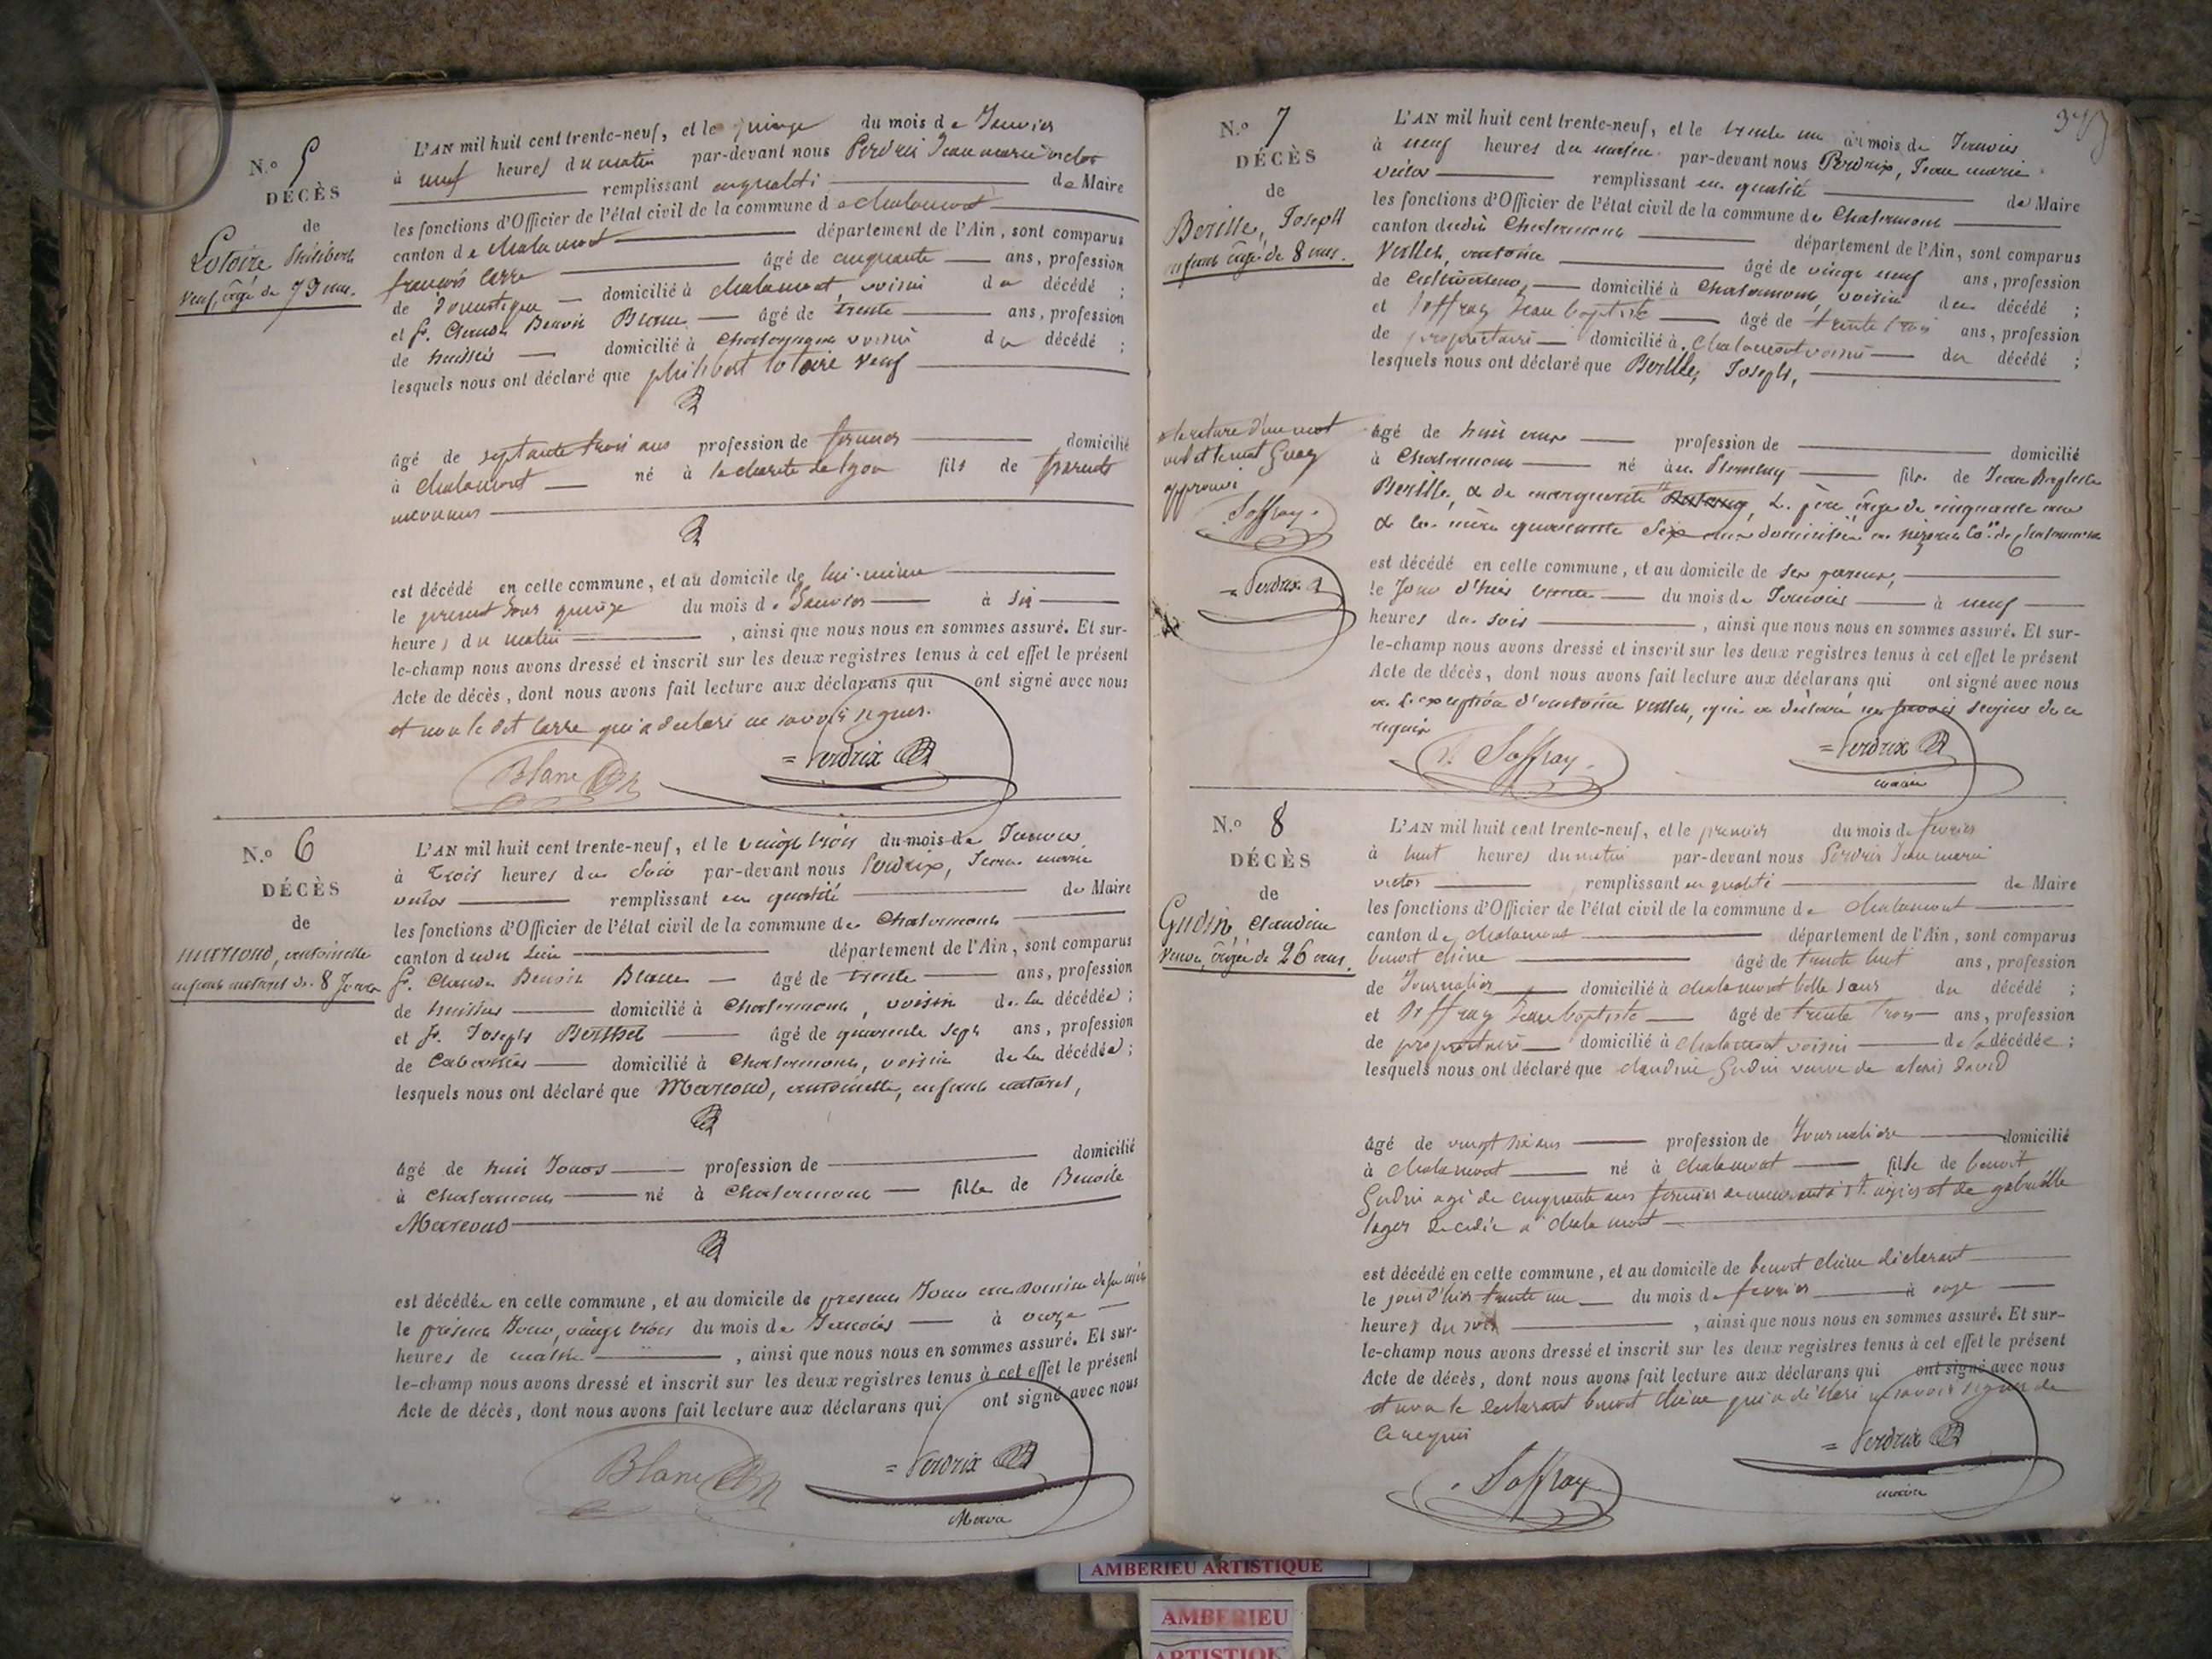 N.o 5
DÉCÈS
de
Lotoire Philibert
veuf, âgé de 73 ans.
L'AN mil huit cent trente-neuf, et le quinze du mois de Janvier
à neuf heures du matin par-devant nous Perdrix Jean marie victor
remplissant en qualité de Maire
les fonctions d'Officier de l'état civil de la commune de chalamont
canton de chalamont département de l'Ain, sont comparus
françois carre âgé de cinquante ans, profession
de domestique domicilié à chalamont voisin du décédé ;
et Sr. Claude Benoit Blanc âgé de trente ans, profession
de huissier domicilié à Chalamont voisin du décédé ;
lesquels nous ont déclaré que philibert lotoire veuf
âgé de septante trois ans profession de fermier domicilié
à chalamont né à la charité de lyon fils de parents
inconnus
est décédé en cette commune, et au domicile de lui-même
le present jour quinze du mois de Janvier à six
heures du matin , ainsi que nous nous en sommes assuré. Et sur-
le-champ nous avons dressé et inscrit sur les deux registres tenus à cet effet le présent
Acte de décès, dont nous avons fait lecture aux déclarans qui ont signé avec nous
et non le dit carre qui a declaré ne savoir signer.
Blanc = Perdrix
N.o 6
DÉCÈS
de
Marioud, antoinette
enfant naturel de 8 Jours
L'AN mil huit cent trente-neuf, et le vingt trois du mois de Janvier
à trois heures du Soir par-devant nous Perdrix, Jean marie
victor remplissant en qualité de Maire
les fonctions d'Officier de l'état civil de la commune de Chalamont
canton dudit lieu département de l'Ain, sont comparus
Sr. Claude Benoit Blanc âgé de trente ans, profession
de huissier domicilié à Chalamont, voisin de la décédée ;
et Sr. Joseph Berthet âgé de quarante Sept ans, profession
de Cabaretier domicilié à Chalamont, voisin de la décédée ;
lesquels nous ont déclaré que Marioud, antoinette, enfant naturel,
âgé de huit Jours profession de domicilié
à Chalamont né à Chalamont fille de Benoite
Marioud
est décédée en cette commune, et au domicile de present Jour au domicile de sa mère
le présent Jour, vingt trois du mois de Janvier à onze
heures de matin , ainsi que nous nous en sommes assuré. Et sur-
le-champ nous avons dressé et inscrit sur les deux registres tenus à cet effet le présent
Acte de décès, dont nous avons fait lecture aux déclarans qui ont signé avec nous
Blanc = Perdrix
Maire
N.o 7
DÉCÈS
de
Berille, Joseph
enfant âgé de 8 ans.
L'AN mil huit cent trente-neuf, et le trente un du mois de Janvier
à neuf heures du matin par-devant nous Perdrix, Jean marie
victor remplissant en qualité de Maire
les fonctions d'Officier de l'état civil de la commune de Chalamont
canton dudit Chalamont département de l'Ain, sont comparus
antoine âgé de vingt neuf ans, profession
de cultivateur, domicilié à Chalamont, voisin du décédé ;
et Joffray Jean baptiste âgé de trente trois ans, profession
de propriétaire domicilié à Chalamont voisin du décédé ;
lesquels nous ont déclaré que Berille, Joseph,
âgé de huit ans profession de domicilié
à Chalamont né au fils de Jean Baptiste
Berille, & de marguerite L. père âgé de cinquante ans
& la mère quarante Six ans domiciliés
est décédé en cette commune, et au domicile de ses parens,
le Jour d'hier trente du mois de Janvier à neuf
heures du soir , ainsi que nous nous en sommes assuré. Et sur-
le-champ nous avons dressé et inscrit sur les deux registres tenus à cet effet le présent
Acte de décès, dont nous avons fait lecture aux déclarans qui ont signé avec nous
à l'exception d'antoine qui a déclaré ne savoir signer de ce
requis
J. Joffray = Perdrix
maire
la rature d'un mot
approuvé
Joffray
= Perdrix
N.o 8
DÉCÈS
de
Gudin, Claudine
veuve, âgée de 26 ans.
L'AN mil huit cent trente-neuf, et le premier du mois de fevrier
à huit heures du matin par-devant nous Perdrix Jean marie
victor remplissant en qualité de Maire
les fonctions d'Officier de l'état civil de la commune de chalamont
canton de chalamont département de l'Ain, sont comparus
benoit chêne âgé de trente huit ans, profession
de Journalier domicilié à chalamont du décédé ;
et Joffray Jean baptiste âgé de trente trois ans, profession
de propriétaire domicilié à chalamont voisin de la décédée ;
lesquels nous ont déclaré que claudine Gudin veuve de alexis david
âgé de vingt six ans profession de Journalière domicilié
à chalamont né à chalamont fille de benoit
Gudin agé de cinquante ans fermier demeurant à et de gabrielle
décédée à chalamont
est décédé en cette commune, et au domicile de benoit chêne déclarant
le jour d'hier trente un du mois de fevrier à onze
heures du soir , ainsi que nous nous en sommes assuré. Et sur-
le-champ nous avons dressé et inscrit sur les deux registres tenus à cet effet le présent
Acte de décès, dont nous avons fait lecture aux déclarans qui ont signé avec nous
et non le déclarant benoit chêne qui a déclaré ne savoir signer de
ce requis
Joffray = Perdrix
maire
AMBERIEU ARTISTIQUE
AMBERIEU
ARTISTIQUE